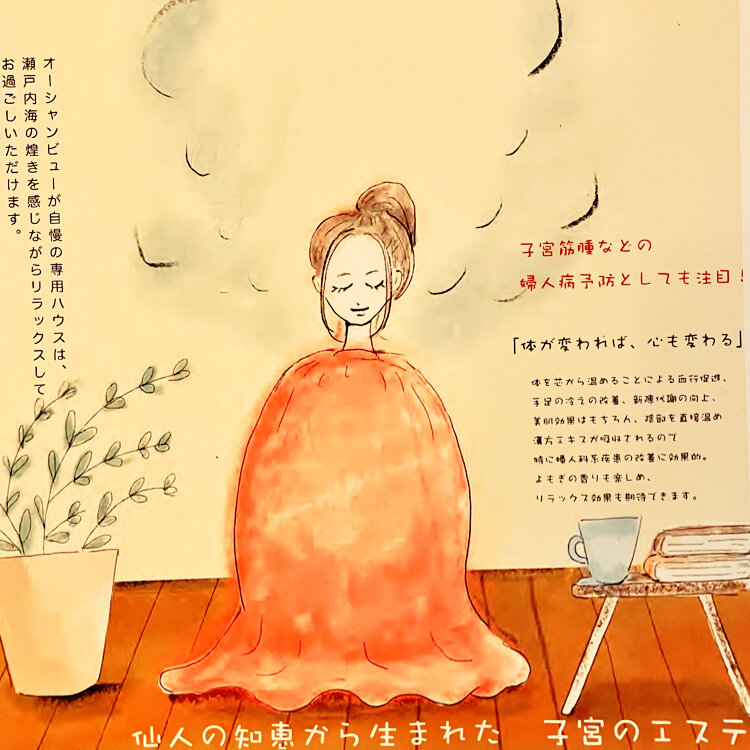 オーシャンビューが自慢の専用ハウスは、
瀬戸内海の煌きを感じながらリラックスして
お過ごしいただけます。
子宮筋腫などの
婦人病予防としても注目!
「体が変われば、心も変わる」
体を芯から温めることによる血行促進、
手足の冷えの改善、新陳代謝の向上、
美肌効果はもちろん、陰部を直接温め
漢方エキスが吸収されるので
特に婦人科系疾患の改善に効果的。
よもぎの香りも楽しめ、
リラックス効果も期待できます。
仙人の知恵から生まれた 子宮のエステ